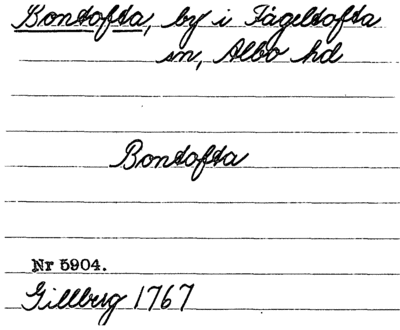 Bontofta, by i Fågeltofta
sn, Albo hd
Bontofta
Nr 5904.
Gillberg 1767